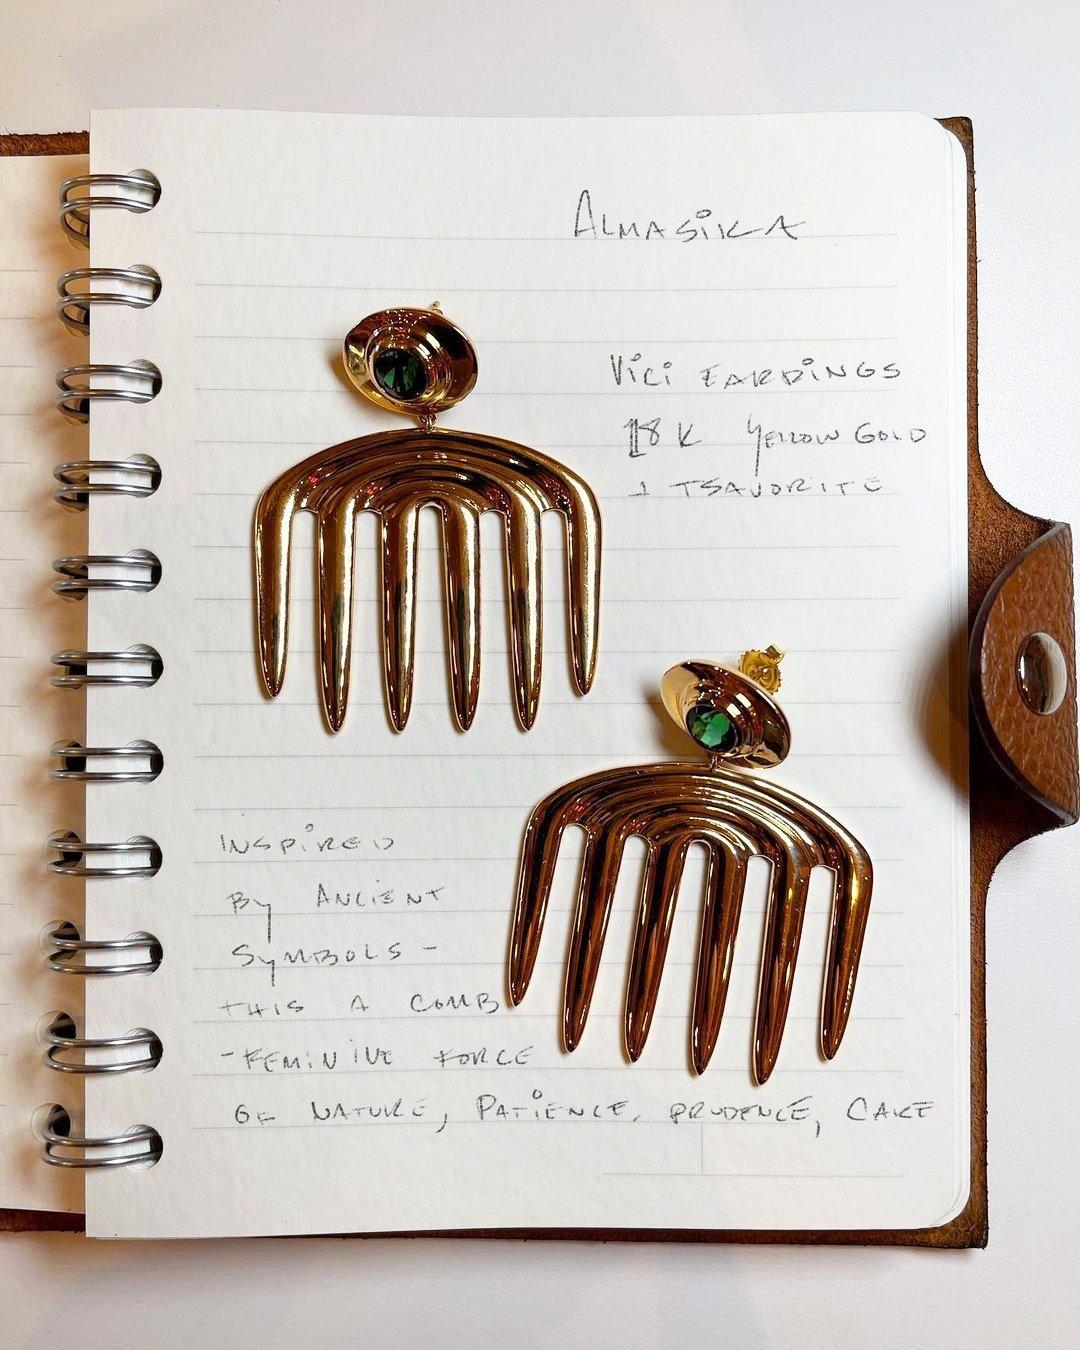 ALMASiKA
ViCi EARRiNGS
18K YELLOW GOLD
& TSAVORITE
iNSPiRED
By ANCiENT
SyMBOLS -
THIS A COMB
- FEMiNiNE FORCE
OF NATURE, PATiENCE, PRUDENCE, CARE